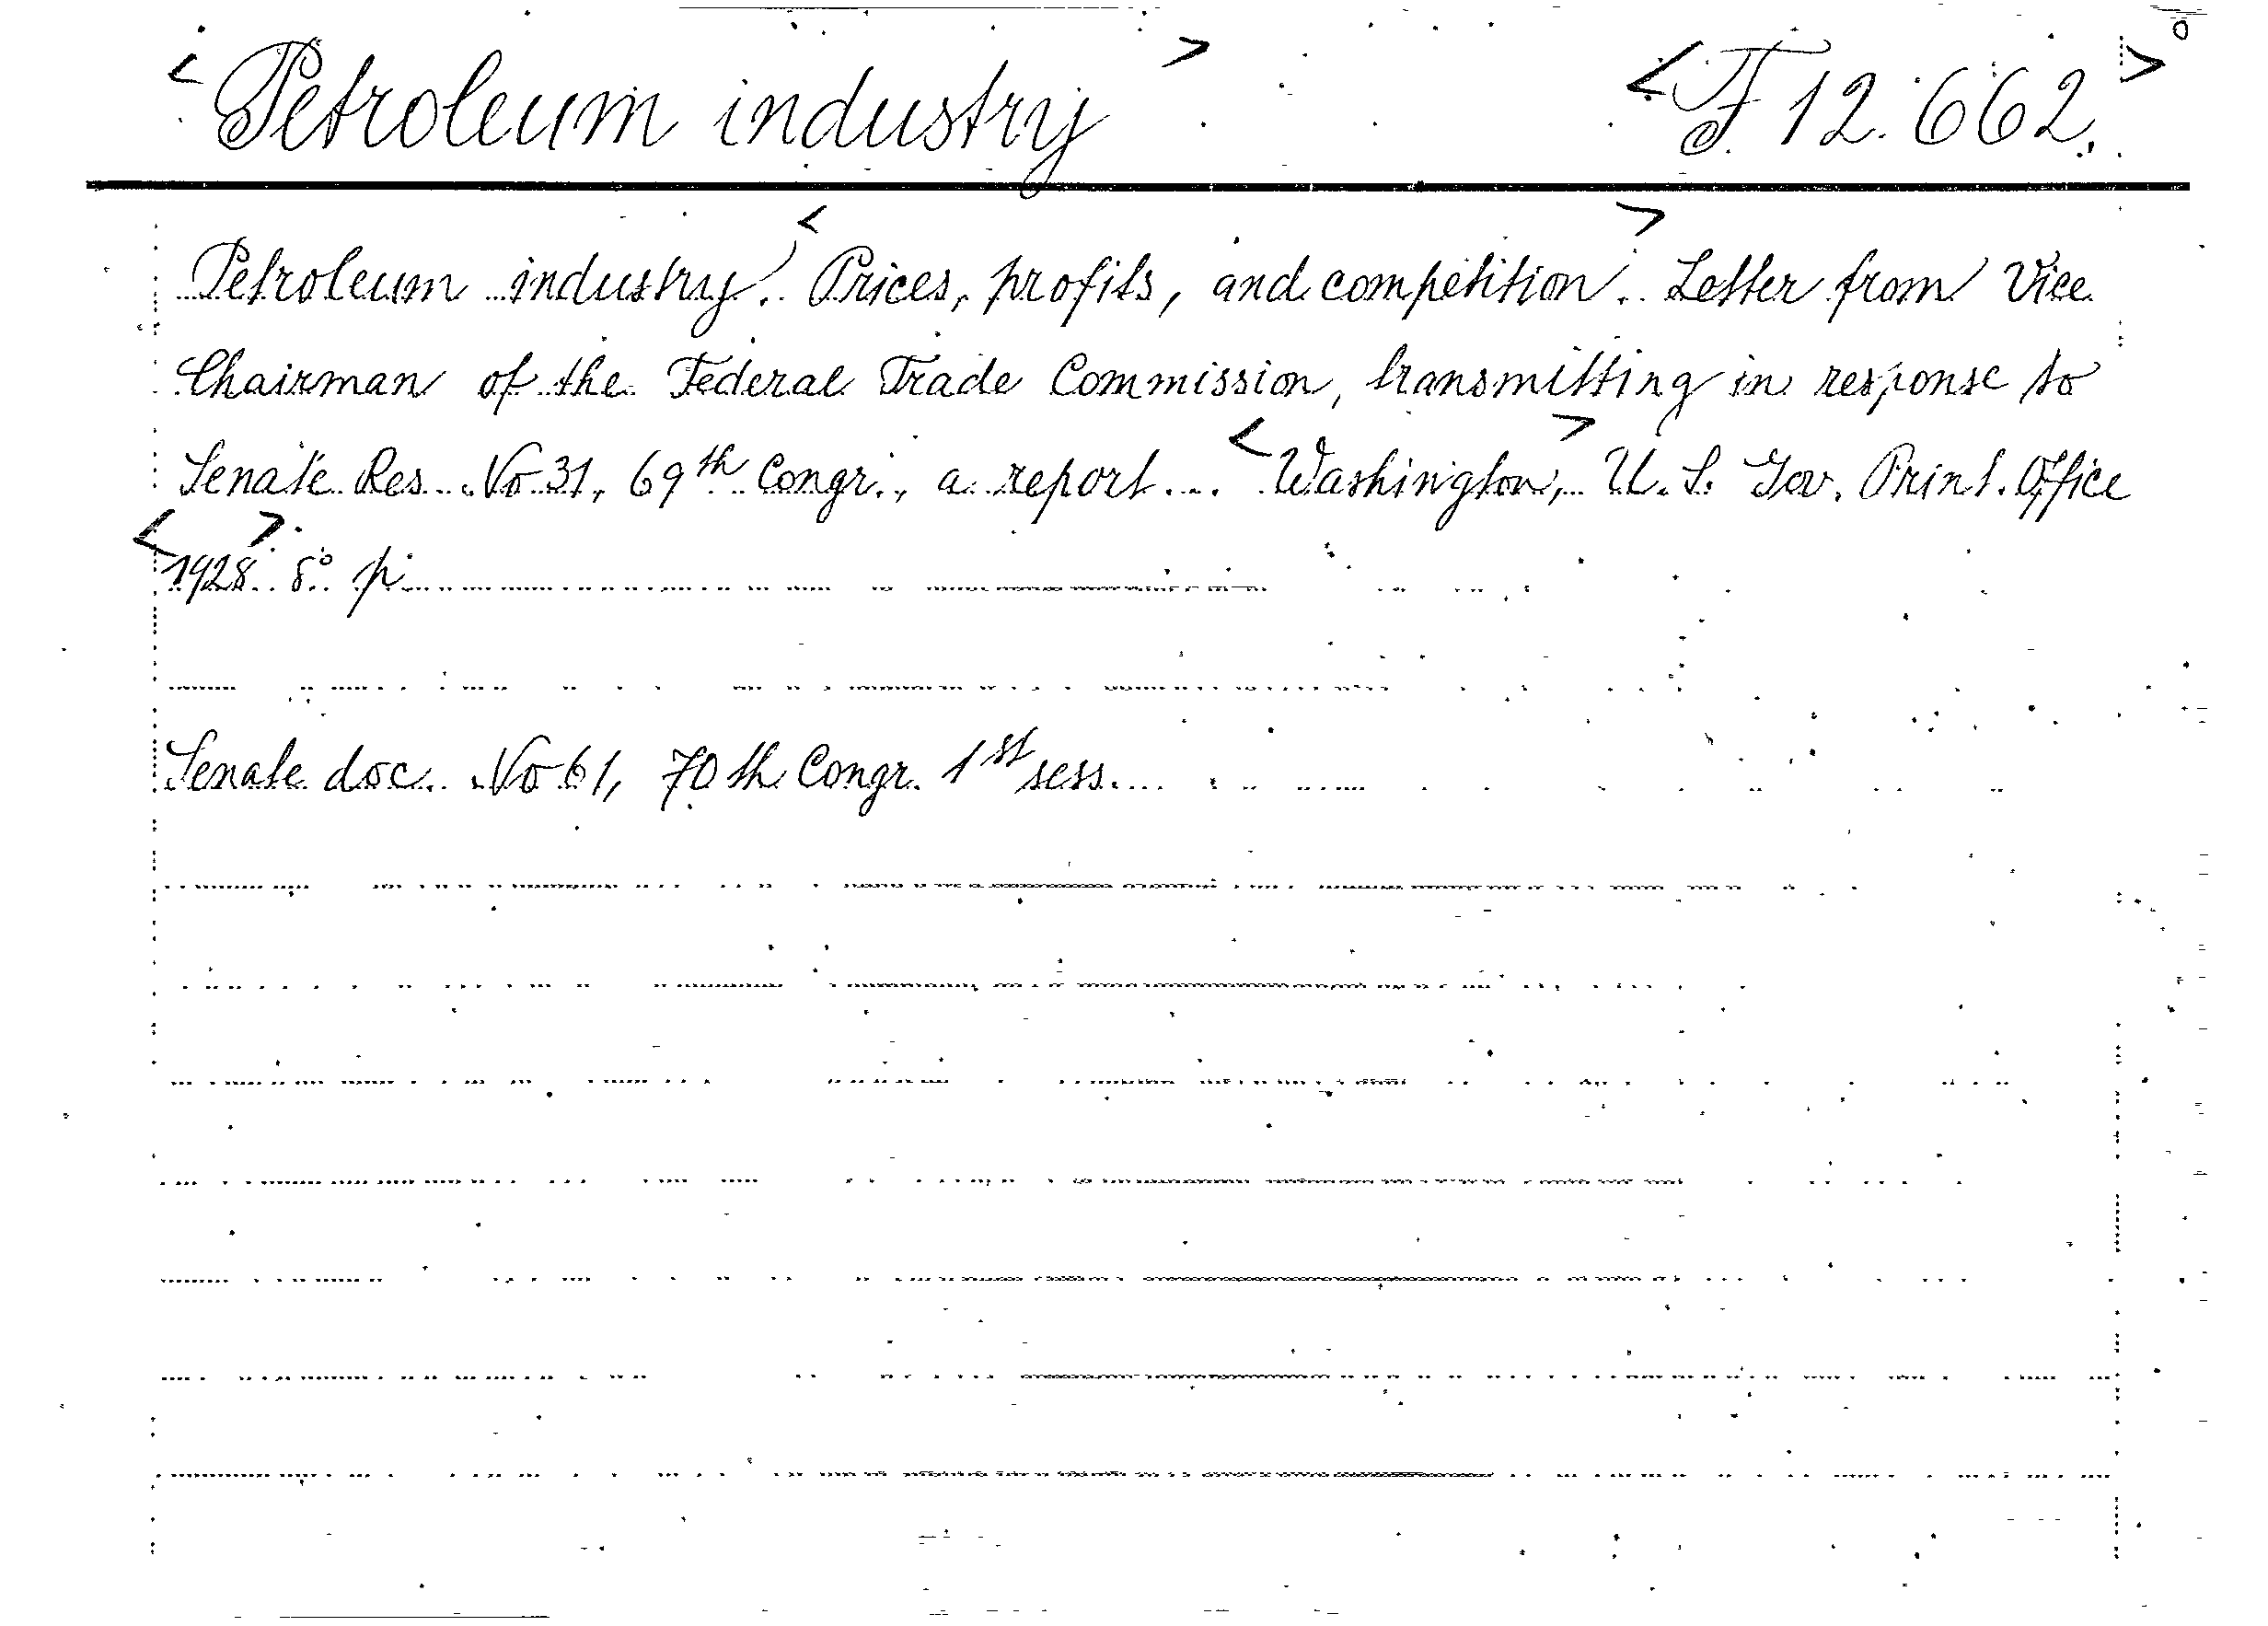 <Petroleum industry> <F 12.662.>
Petroleum industry. <Prices, profits, and competition>. Letter from Vice
Chairman of the Federal Trade Commission, transmitting in response to
Senate Res. No 31, 69th Congr., a report... <Washington>, U.S. Gov. Print. Office
<1928>. 8° p.
Senate doc. No 61, 70th Congr. 1st sess.